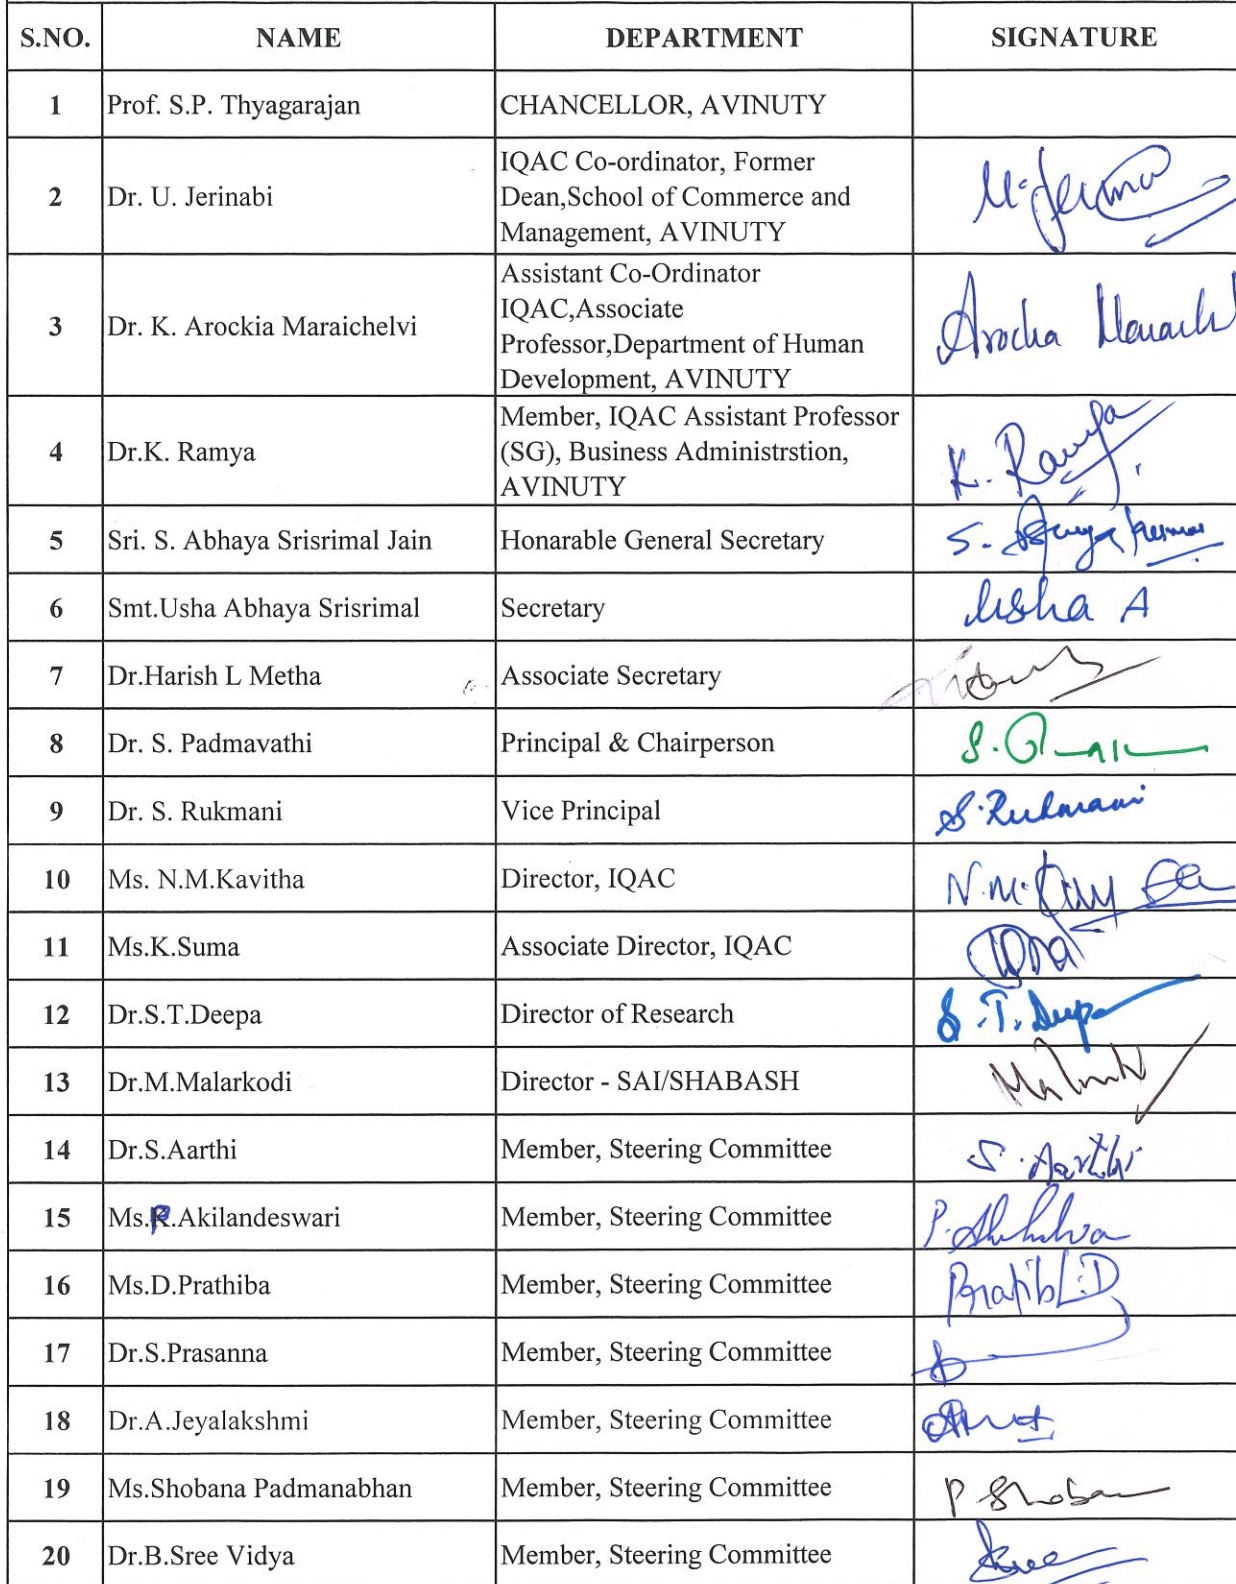 S.NO. NAME DEPARTMENT SIGNATURE
1 Prof. S.P. Thyagarajan CHANCELLOR, AVINUTY
2 Dr. U. Jerinabi IQAC Co-ordinator, Former
Dean,School of Commerce and
Management, AVINUTY
3 Dr. K. Arockia Maraichelvi Assistant Co-Ordinator
IQAC,Associate
Professor,Department of Human
Development, AVINUTY
4 Dr.K. Ramya Member, IQAC Assistant Professor
(SG), Business Administrstion,
AVINUTY
K. Ramya
5 Sri. S. Abhaya Srisrimal Jain Honarable General Secretary
6 Smt.Usha Abhaya Srisrimal Secretary Usha A
7 Dr.Harish L Metha Associate Secretary
8 Dr. S. Padmavathi Principal & Chairperson
9 Dr. S. Rukmani Vice Principal S. Rukmani
10 Ms. N.M.Kavitha Director, IQAC
11 Ms.K.Suma Associate Director, IQAC
12 Dr.S.T.Deepa Director of Research S.T. Deepa
13 Dr.M.Malarkodi Director - SAI/SHABASH
14 Dr.S.Aarthi Member, Steering Committee S. Aarthi
15 Ms.P.Akilandeswari Member, Steering Committee
16 Ms.D.Prathiba Member, Steering Committee
17 Dr.S.Prasanna Member, Steering Committee
18 Dr.A.Jeyalakshmi Member, Steering Committee
19 Ms.Shobana Padmanabhan Member, Steering Committee
20 Dr.B.Sree Vidya Member, Steering Committee